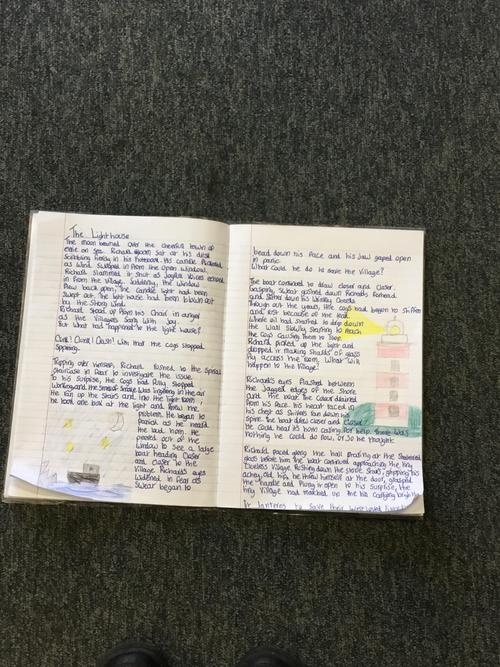 The Lighthouse
The moon beamed over the cheerful town of
on sea. Richard sat at his desk
Scribbling in his notebook. His candle flickered
as wind swooped in from the open window.
Richard slammed it shut as Joyful voices echoed
in from the village. Suddenly, the window
flew back open. The candle light had been
swept out. The light house had been blown out
by the strong wind.
Richard stood up from his chair in anger
as the villagers sang with joy.
But what had happened to the light house?
Clink! Clank! Clash! Was that the cogs stopped
Spinning.
Tripping over himself, Richard rushed to the spiral
staircase in fear to investigate the issue.
To his surprise, the cogs had fully stopped
working and the smell of smoke was lingering in the air
He ran up the stairs and into the light room
he took one look at the light and knew the
problem. He began to
panic as he heard
the loud horn. He
peered out of the
window to see a large
boat heading closer
and closer to the
village. Richards eyes
widened in fear as
swear began to
bead down his face and his jaw gaped open
in panic.
What could he do to save the village?
The boat continued to draw closer and closer.
Gasping, sweat gushed down Richard's forehead
and down his
Though out the years, the cogs had begun to stiffen
and rust because of the
Where oil had started to drip down
the wall slowly starting to
the cogs causing them to
Richard picked up the light and
dropped it making shards of glass
fly across the room. What will
happen to the village?
Richard's eyes flashed between
the jagged edges of the shore
and the boat. The colour drained
from his face. His heart raced in
his chest as shivers ran down his
spine. The boat drew closer and closer
he could hear its horn calling for help. There was
nothing he could do now. Or so he thought.
Richard paced along the hall peering at the shattered
glass before him. The boat continued approaching the tiny
clueless village. Rushing down the stone stairs, gripping his
achey old hip, he threw himself at the door, grasped
the handle and flung it open. To his surprise, the
tiny village had marched up the hill carrying bright
lanterns to save their